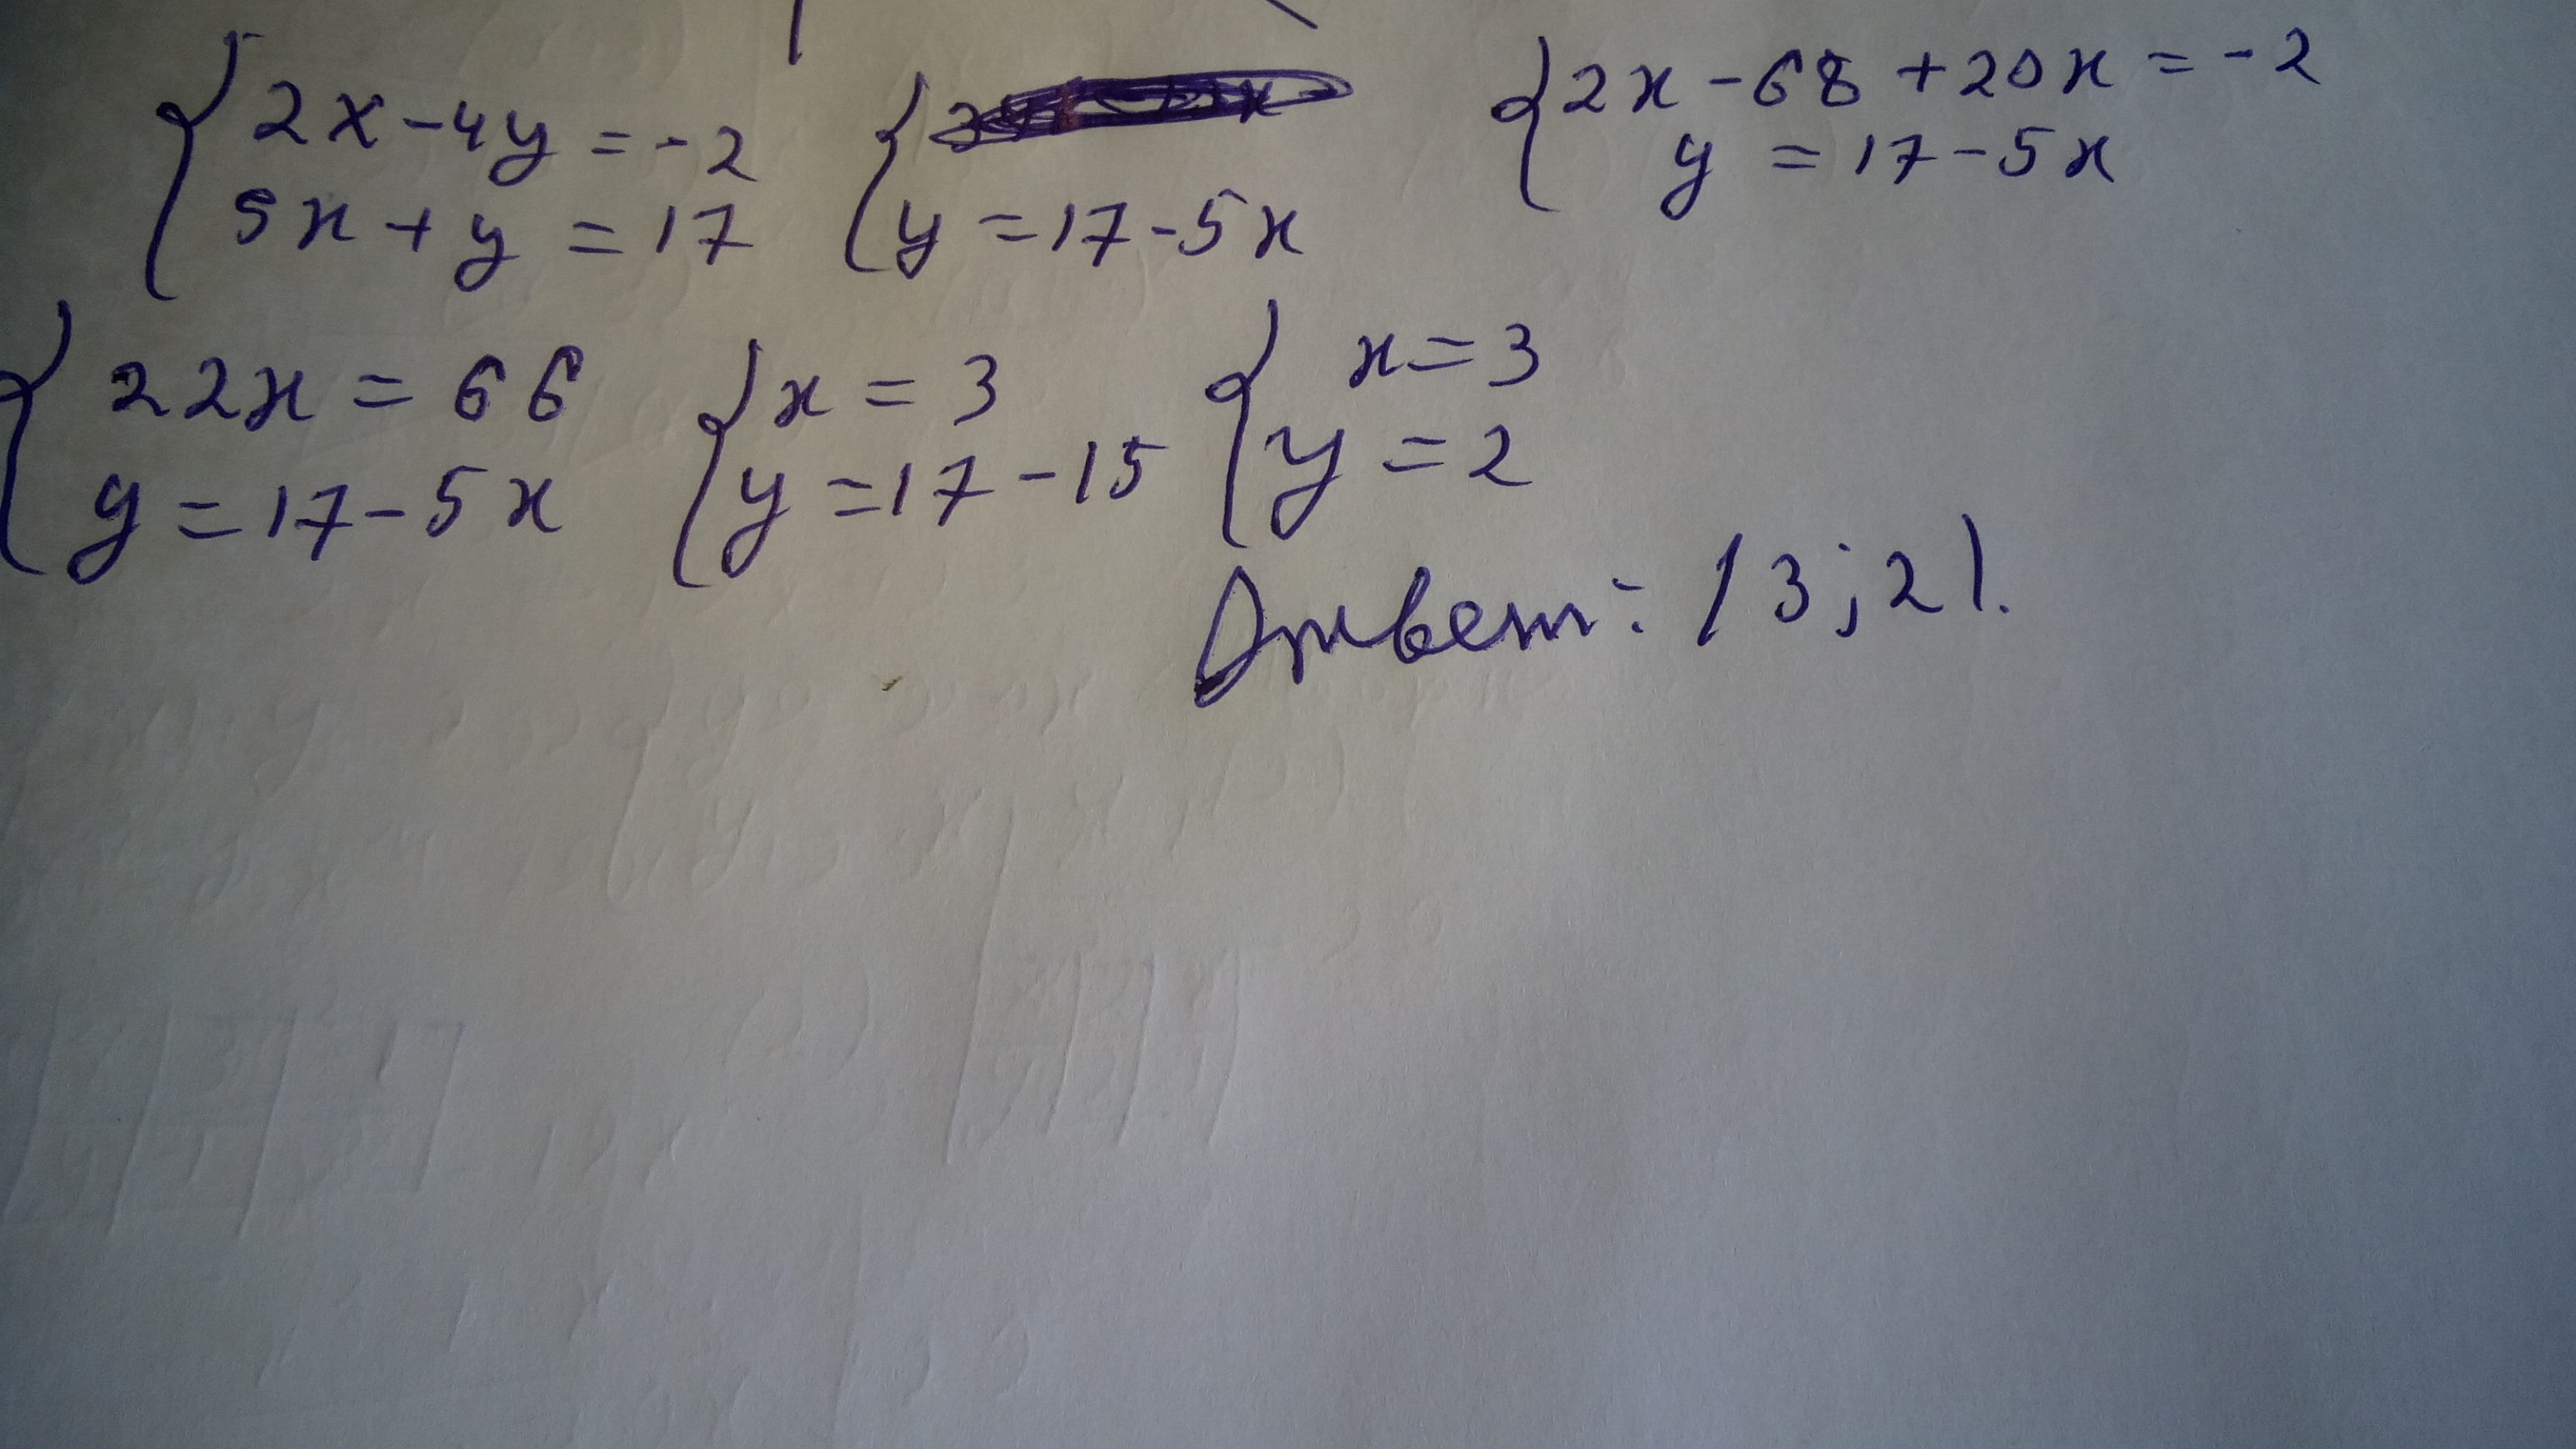 2x-4y=-2
5x+y=17
y=17-5x
2x-68+20x=-2
y=17-5x
22x=66
y=17-5x
x=3
y=17-15
x=3
y=2
Ответ: (3;2).